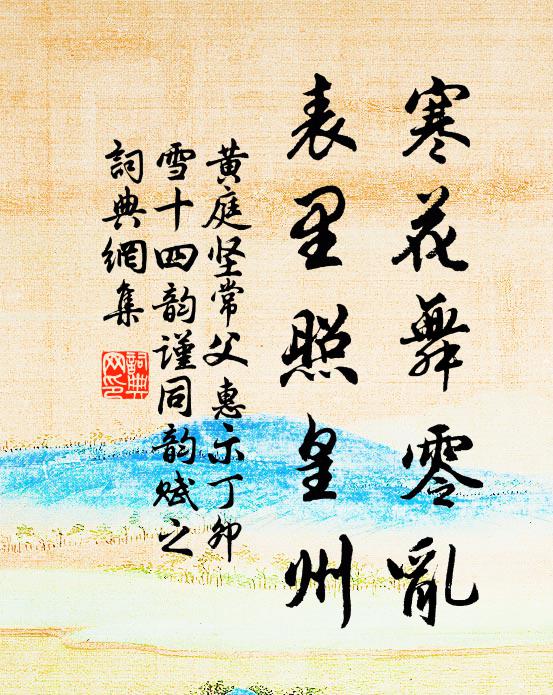 寒花舞零亂
表里照皇州
黄庭坚常父惠示丁卯
雪十四韵谨同韵赋之
詞典網集
詞典
网印